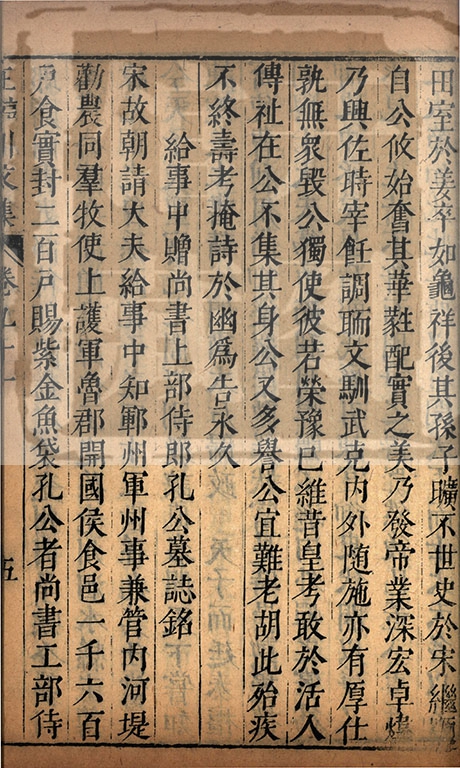 田室於姜卒如龜祥後其孫子曠不世史於宋繼
自公攸始奮其華蕤配實之美乃發帝業深宏卓
乃興佐時宰飪調胹文馴武克內外随施亦有厚仕
孰無衆毀公獨使彼若榮豫已維昔皇考敢於活人
傳祉在公不集其身公又多譽公宜難老胡此殆疾
不終壽考掩詩於幽為告永久
給事中贈尚書上部侍郎孔公墓誌銘
宋故朝請大夫給事中知鄆州軍州事兼管內河堤
勸農同羣牧使上護軍魯郡開國侯食邑一千六百
戸食實封二百戸賜紫金魚袋孔公者尚書工部侍
王臨川文集
卷九十一
五